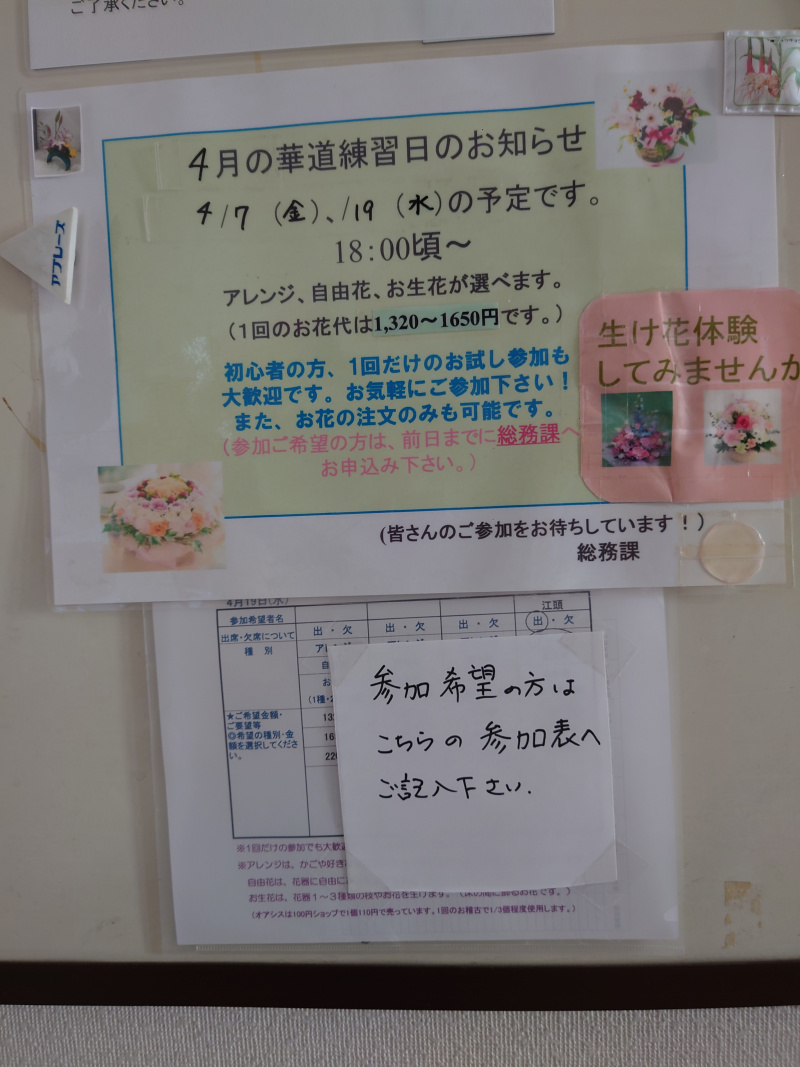 ご了承ください。
4月の華道練習日のお知らせ
4/7（金）、/19（水）の予定です。
18:00頃～
アレンジ、自由花、お生花が選べます。
（1回のお花代は1,320～1650円です。）
初心者の方、1回だけのお試し参加も
大歓迎です。お気軽にご参加下さい！
また、お花の注文のみも可能です。
（参加ご希望の方は、前日までに総務課へ
お申込み下さい。）
アプレーズ
生け花体験
してみませんか
（皆さんのご参加をお待ちしています！）
総務課
4月19日（水）
参加希望者名 江頭
出席・欠席について 出・欠 出・欠 出・欠 出・欠
種別
★ご希望金額・
ご要望等
◎希望の種別・金
額を選択してくださ
い。
参加希望の方は
こちらの参加表へ
ご記入下さい.
※1回だけの参加でも大歓迎
※アレンジは、かごや好き
自由花は、花器に自由に
お生花は、花器1～3種類の枝やお花を生けます。
（オアシスは100円ショップで1個110円で売っています。1回のお稽古で1/3個程度使用します。）